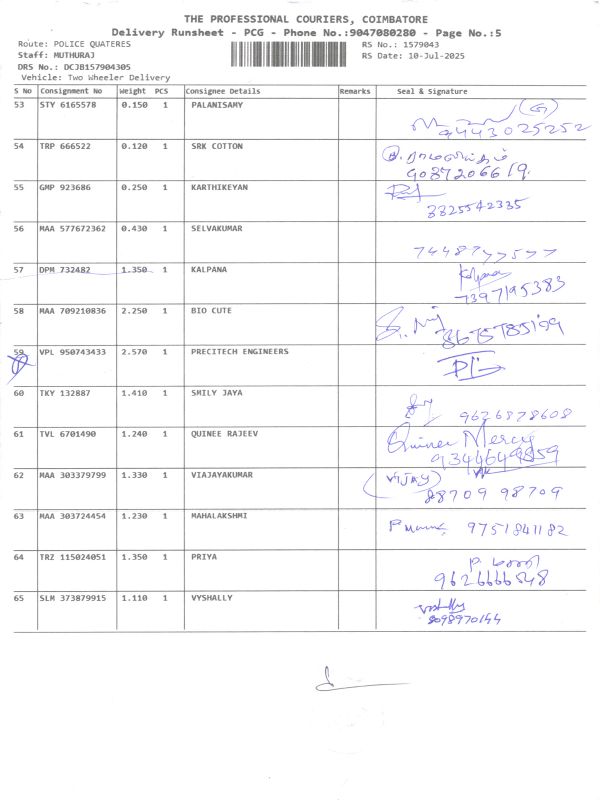 THE PROFESSIONAL COURIERS, COIMBATORE
Delivery Runsheet - PCG - Phone No.:9047080280 - Page No.:5
Route: POLICE QUATERES RS No.: 1579043
Staff: MUTHURAJ RS Date: 10-Jul-2025
DRS No.: DCJB157904305
Vehicle: Two Wheeler Delivery
S No Consignment No Weight PCS Consignee Details Remarks Seal & Signature
53 STY 6165578 0.150 1 PALANISAMY
9443025252
54 TRP 666522 0.120 1 SRK COTTON
9087206619.
55 GMP 923686 0.250 1 KARTHIKEYAN
56 MAA 577672362 0.430 1 SELVAKUMAR
57 DPM 732482 1.350 1 KALPANA Kalpana
7397195383
58 MAA 709210836 2.250 1 BIO CUTE
59 VPL 950743433 2.570 1 PRECITECH ENGINEERS
60 TKY 132887 1.410 1 SMILY JAYA
9626878608
61 TVL 6701490 1.240 1 QUINEE RAJEEV Quinee Mercy
62 MAA 303379799 1.330 1 VIAJAYAKUMAR (VIJAY)
88709 98709
63 MAA 303724454 1.230 1 MAHALAKSHMI
9751841182
64 TRZ 115024051 1.350 1 PRIYA
9626666548
65 SLM 373879915 1.110 1 VYSHALLY Vyshally
8098970144